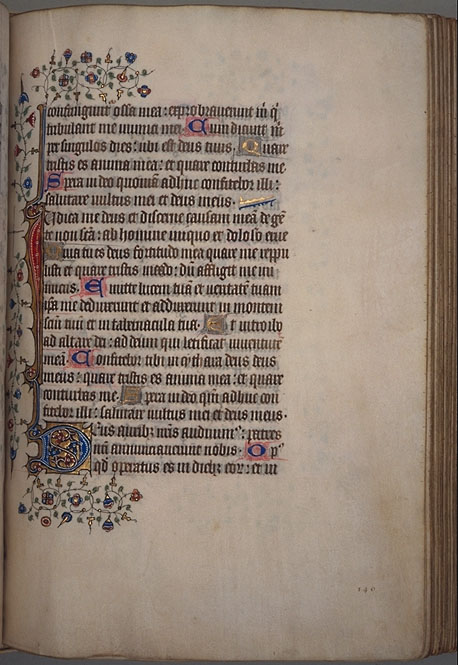 confringunt ossa mea: exprobrauerunt m̄ q̄
tribulant me inimici mei Cum dicunt m̄
per singulos dies: ubi est deus tuus. Quare
tristis es anima mea: et quare conturbas me
Spera in deo quoniam adhuc confitebor illi:
salutare uultus mei et deus meus.
Iudica me deus et discerne causam meā de gē
te non scā: ab homine iniquo et doloso erue
Quia tu es deus fortitudo mea quare me reppu
listi et quare tristis incedo: dū affligit me ini
micus. Emitte lucem tuā et ueritatē tuam
ipsa me deduxerunt et adduxerunt in montem
scm̄ tuū et in tabernacula tua. Et introibo
ad altare dei: ad deum qui letificat iuuentutē
meā. Confitebor tibi in cythara deus deus
meus: quare tristis es anima mea: et quare
conturbas me. Spera in deo qm̄ adhuc con
fitebor illi: salutare uultus mei et deus meus.
Deus auribꝫ nr̄is audiuimꝰ: patres
nr̄i annunciauerunt nobis. Opꝰ
qd operatus es in diebꝫ eoꝝ: et in
140